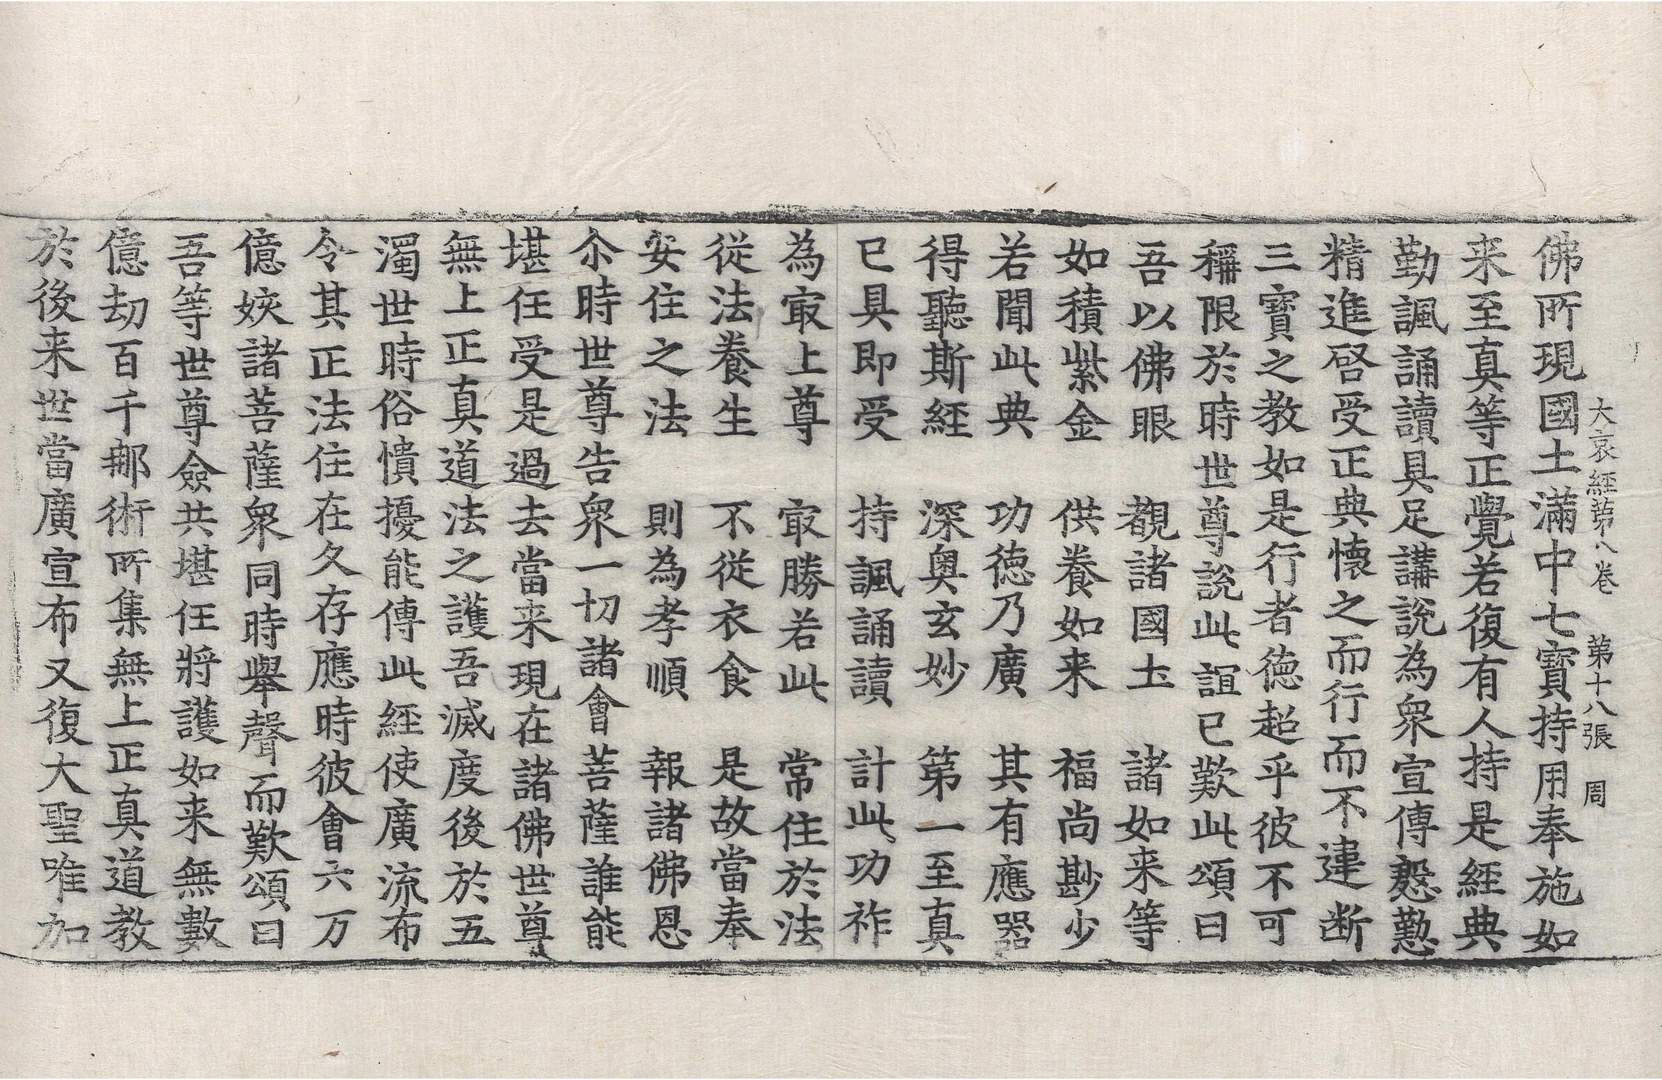 大哀經第八卷　第十八張　周
佛所現國土滿中七寶持用奉施如
来至真等正覺若復有人持是經典
勤諷誦讀具足講說為衆宣傳慇懃
精進啓受正典懷之而行而不違断
三寶之教如是行者德超乎彼不可
稱限於時世尊說此誼已歎此頌曰
吾以佛眼　觀諸國土　諸如来等
如積紫金　供養如来　福尚尠少
若聞此典　功德乃廣　其有應器
得聽斯經　深奧玄妙　第一至真
已具即受　持諷誦讀　計此功祚
為㝡上尊　㝡勝若此　常住於法
從法養生　不從衣食　是故當奉
安住之法　則為孝順　報諸佛恩
尒時世尊告衆一切諸會菩薩誰能
堪任受是過去當来現在諸佛世尊
無上正真道法之護吾滅度後於五
濁世時俗憒擾能傳此經使廣流布
令其正法住在久存應時彼會六万
億姟諸菩薩衆同時舉聲而歎頌曰
吾等世尊僉共堪任將護如来無數
億劫百千那術所集無上正真道教
於後来世當廣宣布又復大聖唯加